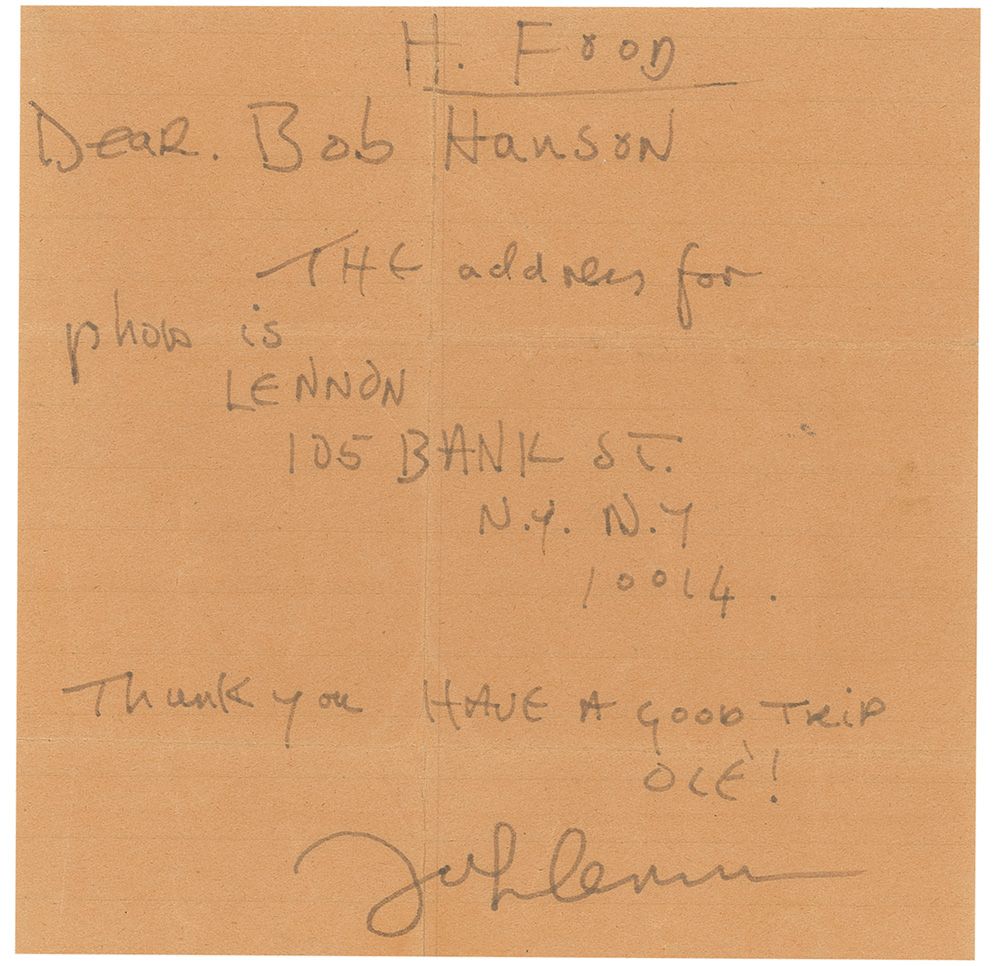 H. Food
Dear. Bob Hanson
THE address for
photos is
LENNON
105 BANK ST.
N.Y. N.Y
10014.
Thank you HAVE A GOOD TRIP
OLÉ!
John Lennon